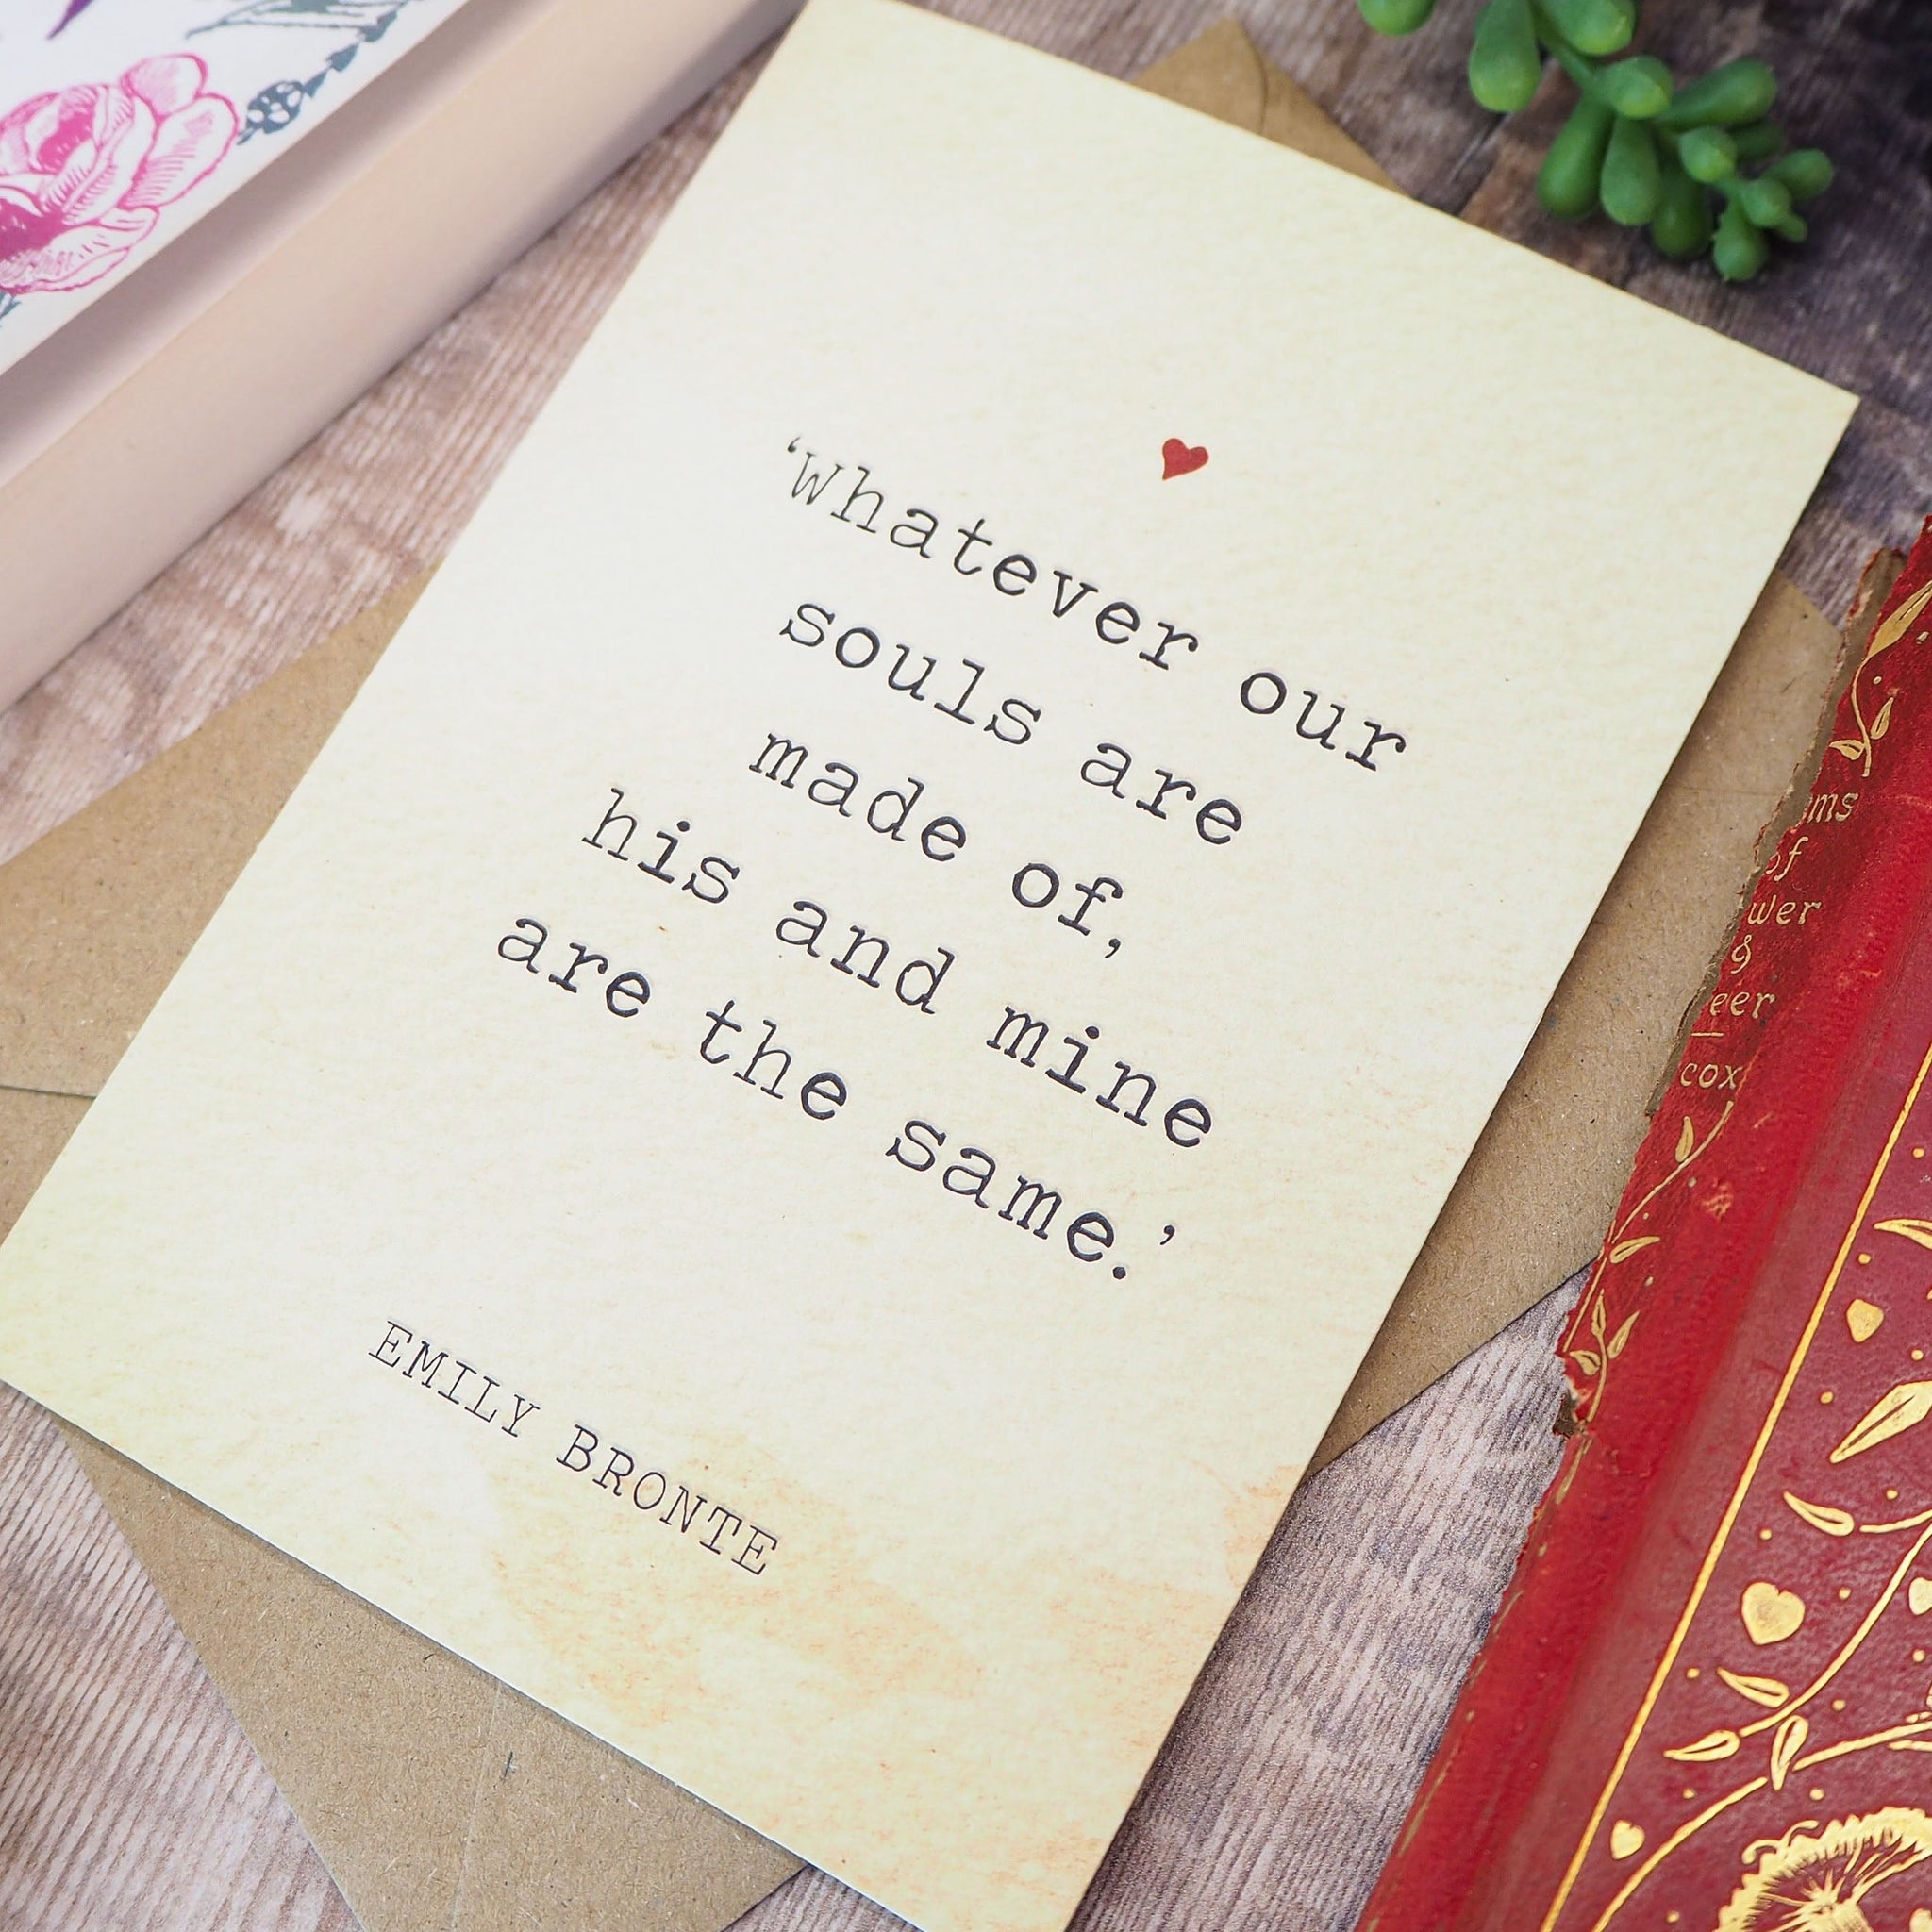 ‘Whatever our
souls are
made of,
his and mine
are the same.’
EMILY BRONTE
of
&
cox